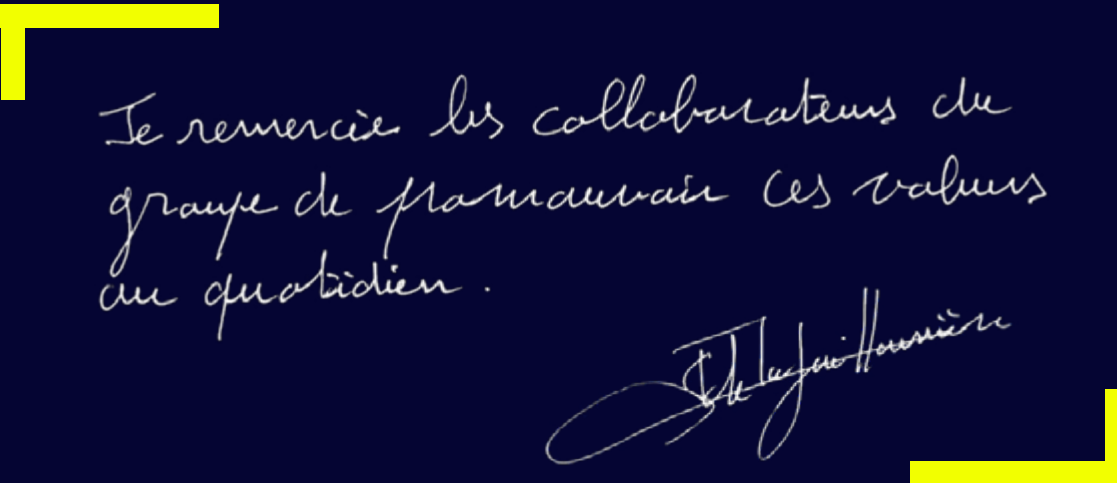 Je remercie les collaborateurs du
groupe de promouvoir ces valeurs
au quotidien.